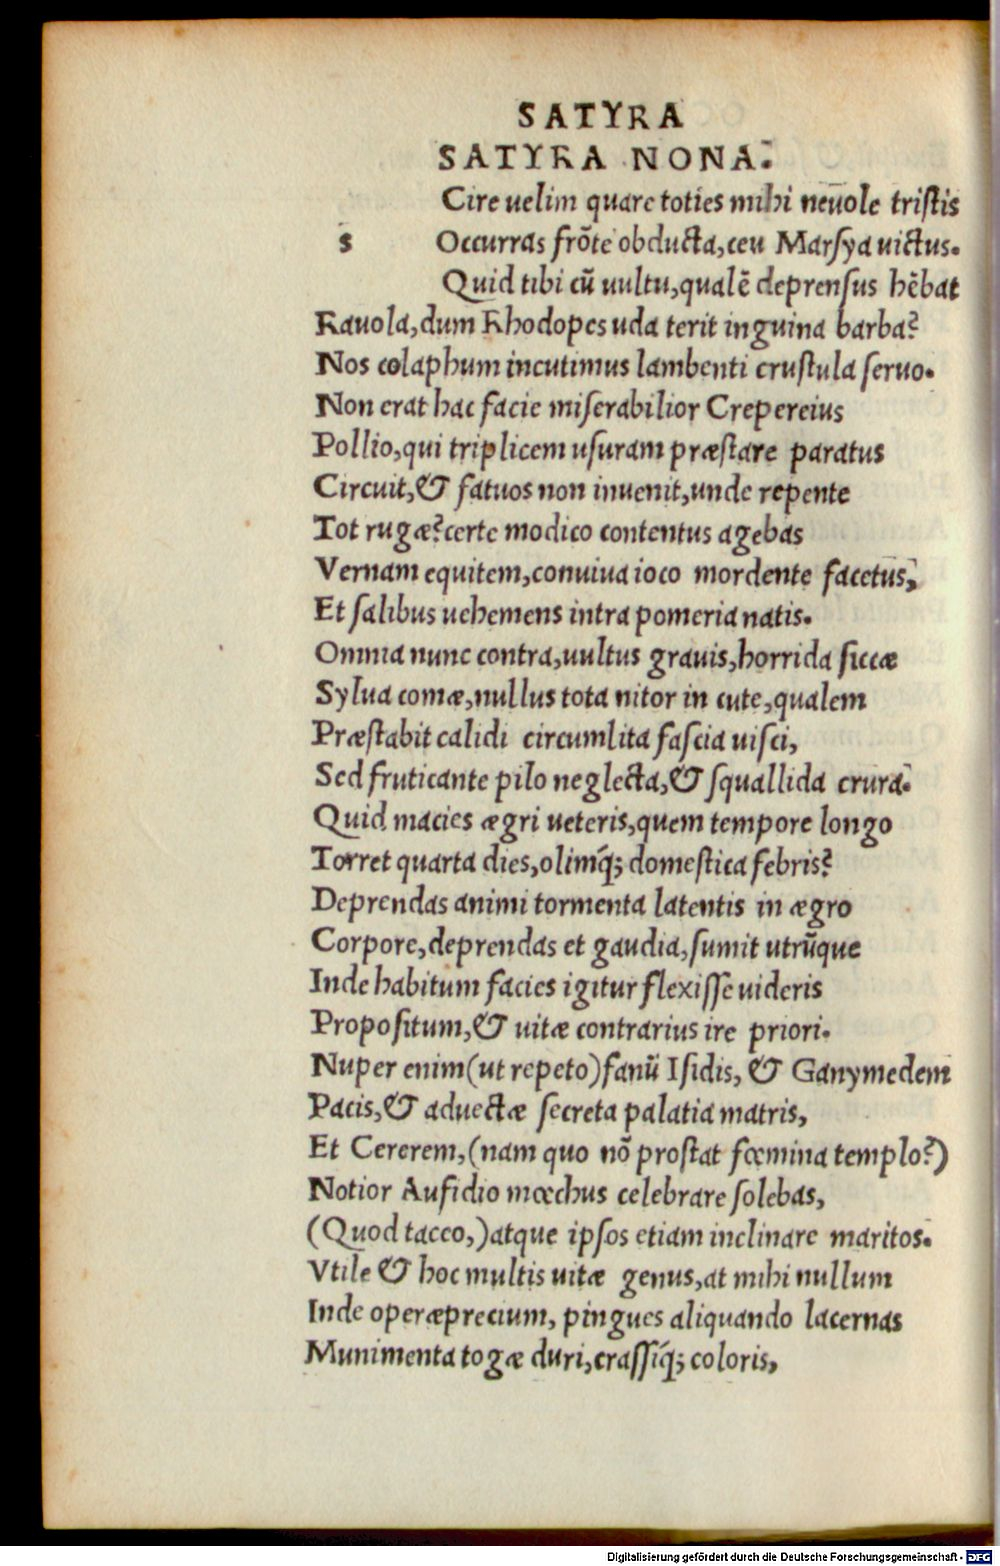 SATYRA
SATYRA NONA.
Cire uelim quare toties mihi neuole tristis
s Occurras frõte obducta, ceu Marsya uictus.
Quid tibi cũ uultu, qualẽ deprensus hẽbat
Rauola, dum Rhodopes uda terit inguina barba?
Nos colaphum incutimus lambenti crustula seruo.
Non erat hac facie miserabilior Crepereius
Pollio, qui triplicem usuram præstare paratus
Circuit, & fatuos non inuenit, unde repente
Tot rugæ? certe modico contentus agebas
Vernam equitem, conuiua ioco mordente facetus,
Et salibus uehemens intra pomeria natis.
Omnia nunc contra, uultus grauis, horrida siccæ
Sylua comæ, nullus tota nitor in cute, qualem
Præstabit calidi circumlita fascia uisci,
Sed fruticante pilo neglecta, & squallida crura.
Quid macies ægri ueteris, quem tempore longo
Torret quarta dies, olimq́; domestica febris?
Deprendas animi tormenta latentis in ægro
Corpore, deprendas et gaudia, sumit utrũque
Inde habitum facies igitur flexisse uideris
Propositum, & uitæ contrarius ire priori.
Nuper enim (ut repeto) fanũ Isidis, & Ganymedem
Pacis, & aduectæ secreta palatia matris,
Et Cererem, (nam quo nõ prostat fœmina templo?)
Notior Aufidio mœchus celebrare solebas,
(Quod taceo,) atque ipsos etiam inclinare maritos.
Vtile & hoc multis uitæ genus, at mihi nullum
Inde operæprecium, pingues aliquando lacernas
Munimenta togæ duri, crassiq́; coloris,
Digitalisierung gefördert durch die Deutsche Forschungsgemeinschaft - DFG